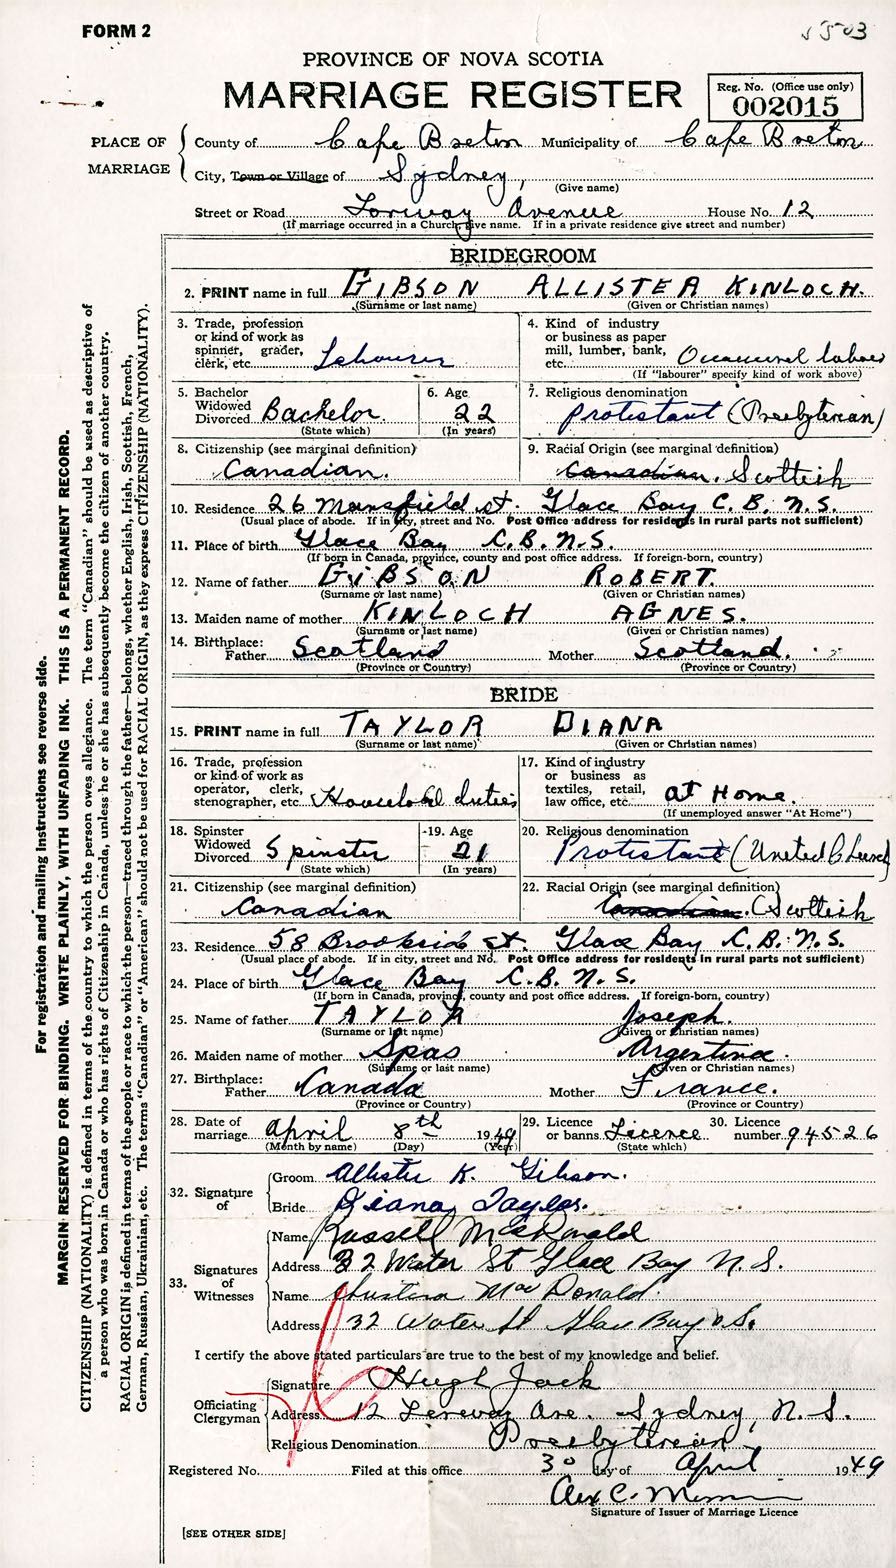 FORM 2
5503
PROVINCE OF NOVA SCOTIA
MARRIAGE REGISTER
Reg. No. (Office use only)
002015
PLACE OF MARRIAGE
County of Cape Breton Municipality of Cape Breton
City, Town or Village of Sydney,
(Give name)
Street or Road Lorway Avenue House No. 12
(If marriage occurred in a Church, give name. If in a private residence give street and number)
BRIDEGROOM
2. PRINT name in full GIBSON ALLISTER KINLOCH.
(Surname or last name) (Given or Christian names)
3. Trade, profession or kind of work as spinner, grader, clerk, etc. Labourer
4. Kind of industry or business as paper mill, lumber, bank, etc. labour
(If "labourer" specify kind of work above)
5. Bachelor Widowed Divorced Bachelor.
(State which)
6. Age 22
(In years)
7. Religious denomination
Protistant (Presbyterian)
8. Citizenship (see marginal definition)
Canadian.
9. Racial Origin (see marginal definition)
Canadian. Scottish
10. Residence 26 Mansfield St. Glace Bay C.B. N.S.
(Usual place of abode. If in city, street and No. Post Office address for residents in rural parts not sufficient)
11. Place of birth Glace Bay C.B. N.S.
(If born in Canada, province, county and post office address. If foreign-born, country)
12. Name of father GIBSON ROBERT.
(Surname or last name) (Given or Christian names)
13. Maiden name of mother KINLOCH AGNES.
(Surname or last name) (Given or Christian names)
14. Birthplace:
Father Scotland Mother Scotland.
(Province or Country) (Province or Country)
BRIDE
15. PRINT name in full TAYLOR DIANA
(Surname or last name) (Given or Christian names)
16. Trade, profession or kind of work as operator, clerk, stenographer, etc. Household duties
17. Kind of industry or business as textiles, retail, law office, etc. at Home.
(If unemployed answer "At Home")
18. Spinster Widowed Divorced Spinster
(State which)
19. Age 21
(In years)
20. Religious denomination
Protistant (United Church)
21. Citizenship (see marginal definition)
Canadian
22. Racial Origin (see marginal definition)
Canadian. (Scottish
23. Residence 58 Brookside St. Glace Bay C.B. N.S.
(Usual place of abode. If in city, street and No. Post Office address for residents in rural parts not sufficient)
24. Place of birth Glace Bay C.B. N.S.
(If born in Canada, province, county and post office address. If foreign-born, country)
25. Name of father TAYLOR Joseph.
(Surname or last name) (Given or Christian names)
26. Maiden name of mother Spas Argentina.
(Surname or last name) (Given or Christian names)
27. Birthplace:
Father Canada Mother France.
(Province or Country) (Province or Country)
28. Date of marriage April 8th 1949
(Month by name) (Day) (Year)
29. Licence or banns Licence
(State which)
30. Licence number 94526
32. Signature of
Groom Allister K. Gibson.
Bride Diana Taylor.
33. Signatures of Witnesses
Name Russell McDonald
Address 32 Water St Glace Bay N.S.
Name Christina MacDonald.
Address 32 Water St Glace Bay N.S.
I certify the above stated particulars are true to the best of my knowledge and belief.
Officiating Clergyman
Signature Hugh Jack
Address 12 Lorway Ave. Sydney, N.S.
Religious Denomination Presbyterian
Registered No. Filed at this office 30 day of April 1949
Alex C.
Signature of Issuer of Marriage Licence
[SEE OTHER SIDE]
For registration and mailing instructions see reverse side.
MARGIN RESERVED FOR BINDING. WRITE PLAINLY, WITH UNFADING INK. THIS IS A PERMANENT RECORD.
CITIZENSHIP (NATIONALITY) is defined in terms of the country to which the person owes allegiance. The term "Canadian" should be used as descriptive of
a person who was born in Canada or who has rights of Citizenship in Canada, unless he or she has subsequently become the citizen of another country.
RACIAL ORIGIN is defined in terms of the people or race to which the person—traced through the father—belongs, whether English, Irish, Scottish, French,
German, Russian, Ukrainian, etc. The terms "Canadian" or "American" should not be used for RACIAL ORIGIN, as they express CITIZENSHIP (NATIONALITY).